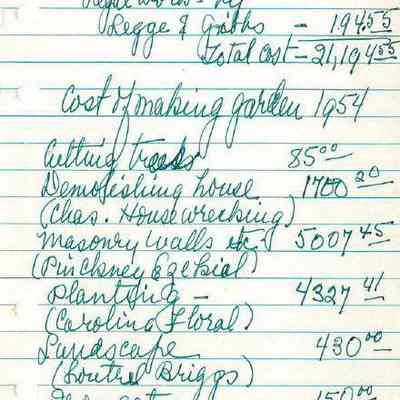 Legge & Gibbs - 194.55
Total cost - 21,194.55
Cost of making garden 1954
Cutting trees 85.00
Demolishing house 1700.20
(Chas. Housewrecking)
Masonry walls etc. 5007.45
(Pinckney Ezekial)
planting - 4327.41
(Carolina Floral)
Landscape 430.00
(Loutrel Briggs)
150.00